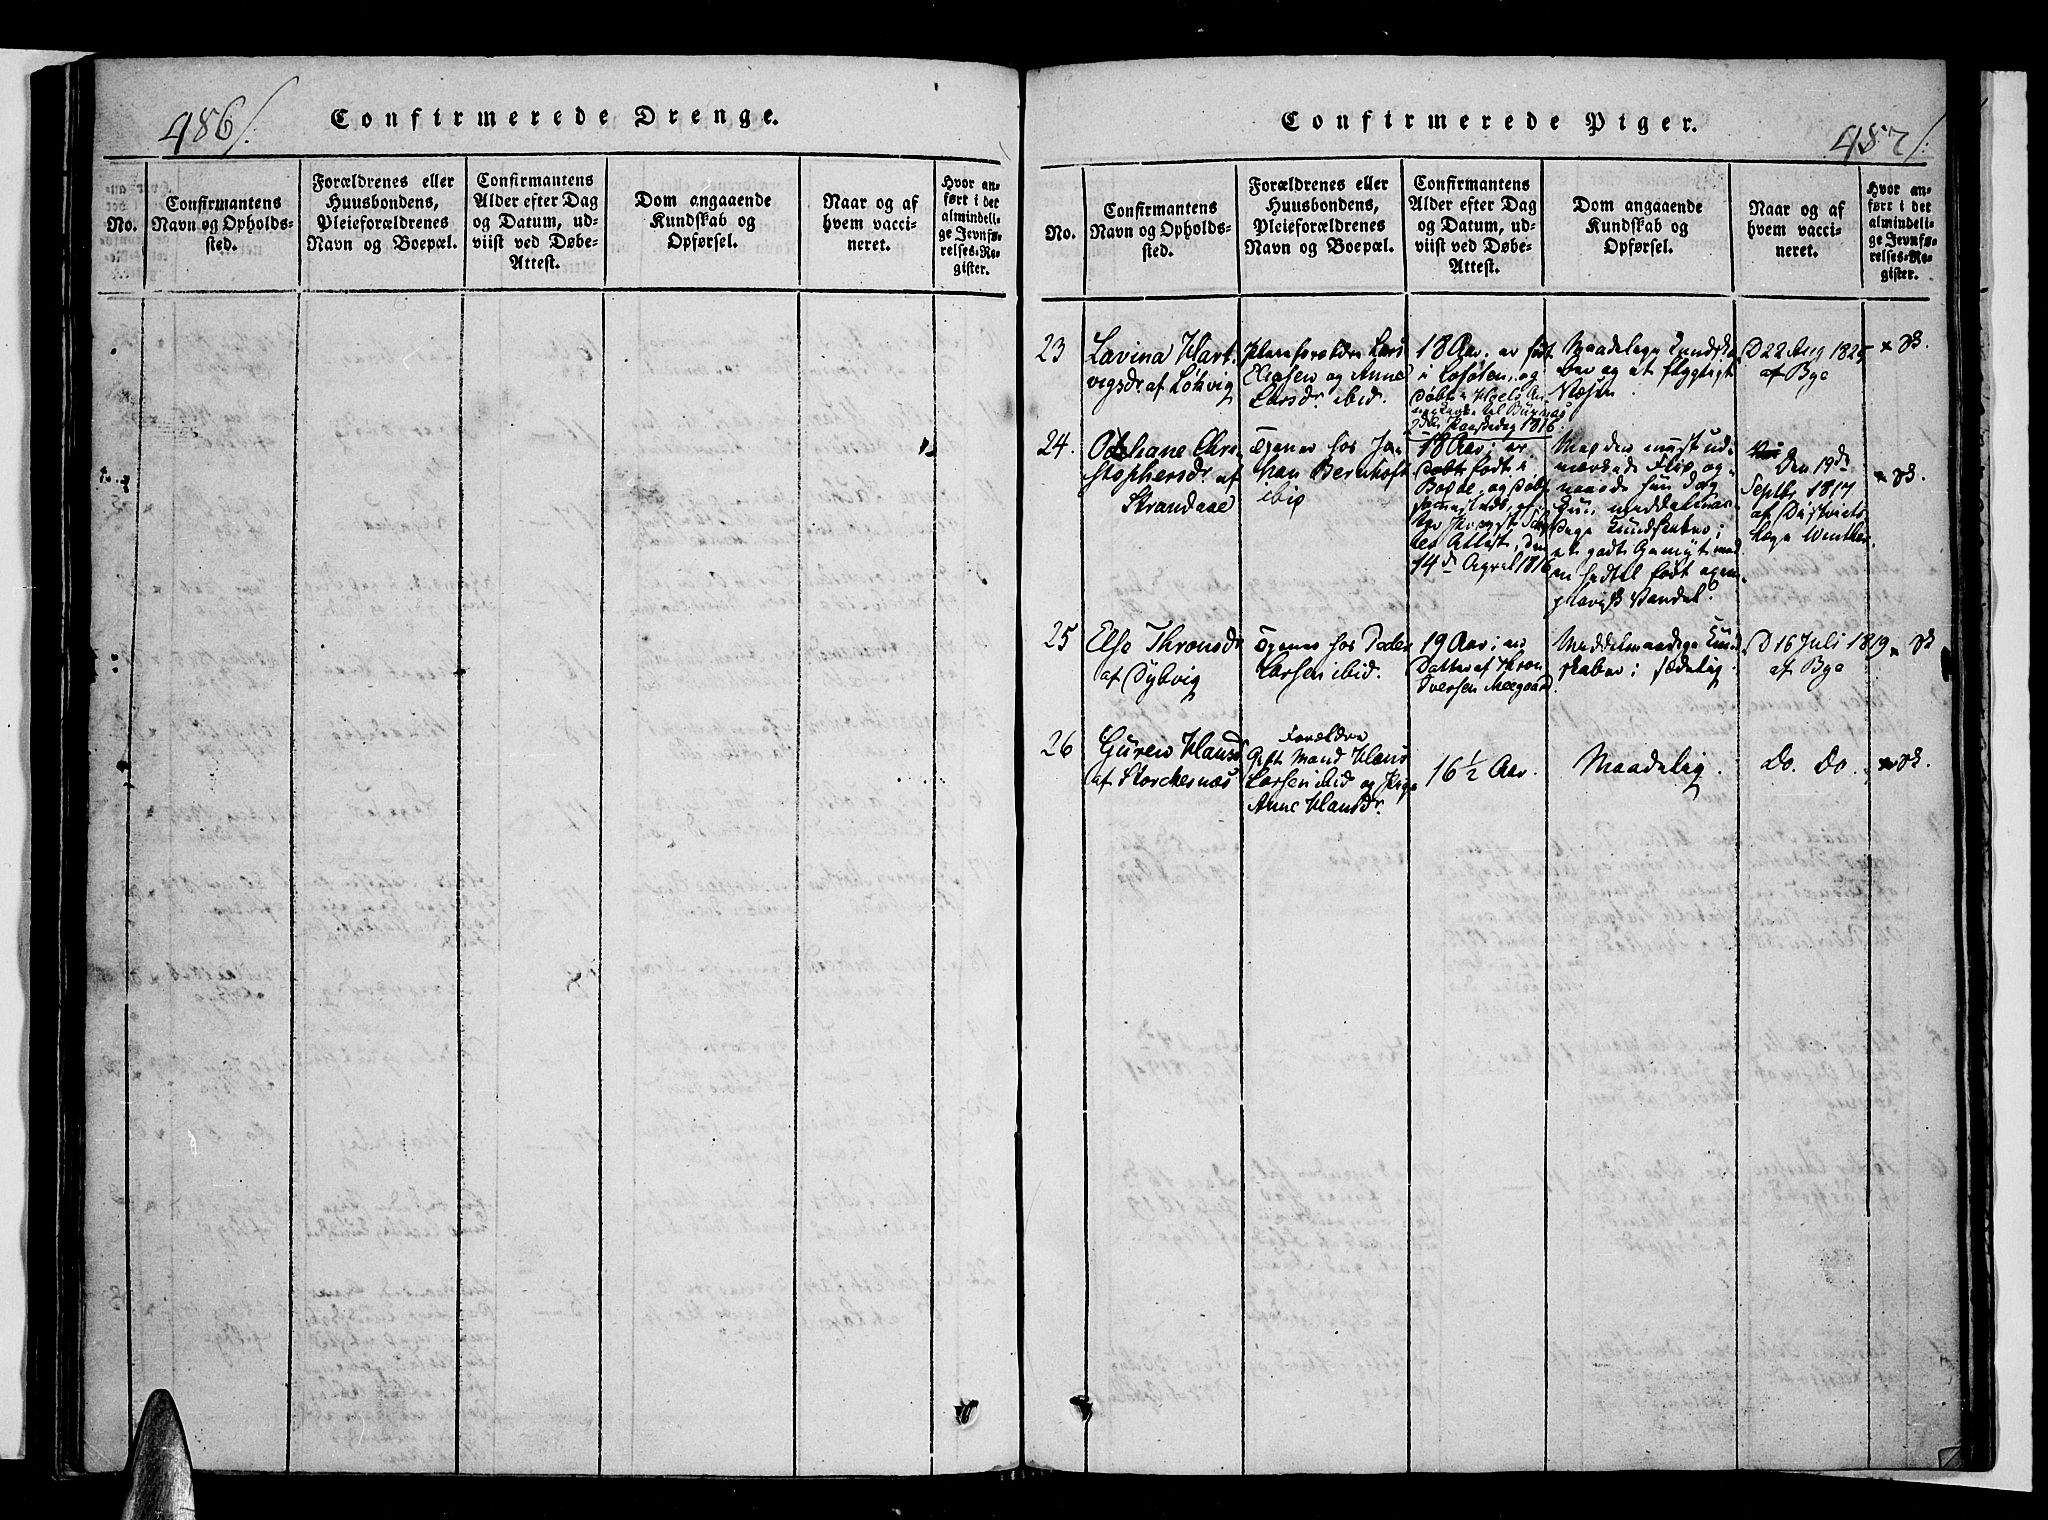 486/.
Confirmerede Drenge.
No.
Confirmantens
Navn og Opholds-
sted.
Forældrenes eller
Huusbondens,
Pleieforældrenes
Navn og Boepæl.
Confirmantens
Alder efter Dag
og Datum, ud-
viist ved Døbe-
Attest.
Dom angaaende
Kundskab og
Opførsel.
Naar og af
hvem vacci-
neret.
Hvor an-
ført i det
almindeli-
ge Jevnfø-
relses-Re-
gister.
Confirmerede Piger.
487/.
No.
Confirmantens
Navn og Opholds-
sted.
Forældrenes eller
Huusbondens,
Pleieforældrenes
Navn og Boepæl.
Confirmantens
Alder efter Dag
og Datum, ud-
viist ved Døbe-
Attest.
Dom angaaende
Kundskab og
Opførsel.
Naar og af
hvem vacci-
neret.
Hvor an-
ført i det
almindeli-
ge Jevnfø-
relses-Re-
gister.
23
Lavina Hart-
vigsdr af Løkvig
Pleieforældre Lars
og Anne
Larsdr. ibid.
18 Aar. er født
i Lofoten, og
døbt i
1816.
Maadelige Kundska-
ber og et flygtigt
Væsen.
D 22 Aug 1825
af Bye
24.
Chri-
stophersdr. af
Strandaae
Tjener hos Jo-
han Bernhoft
ibid
18 Aar; er
født i
Bodøe, og døbt
Attest, den
14de April 1816
Med den meest ud-
mærkede Flid, og
naaede hun dog
kun meddelmaa-
dige Kundskaber;
et godt Gemyt med
Vandel.
Den 19de
Septbr. 1817
af Districts
Læge Winther.
25
Else Thronsdr
af Dybvig
Tjener hos Peder
Larsen ibid.
19 Aar; en
Datter af Thron
Iversen
Meddelmaadige Kund-
skaber; sædelig
D 16 Juli 1819
af Bye
26
Guren Hansd
af Storchesnæs
Forældre
Gift Mand Hans
Larsen ibid og Pige
Anne Hansdr.
16 1/2 Aar.
Maadelig.
Do. Do.